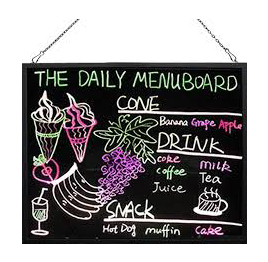 THE DAILY MENUBOARD
CONE
Banana Grape Apple
DRINK
coke milk
coffee Tea
Juice
SNACK
Hot Dog muffin Cake